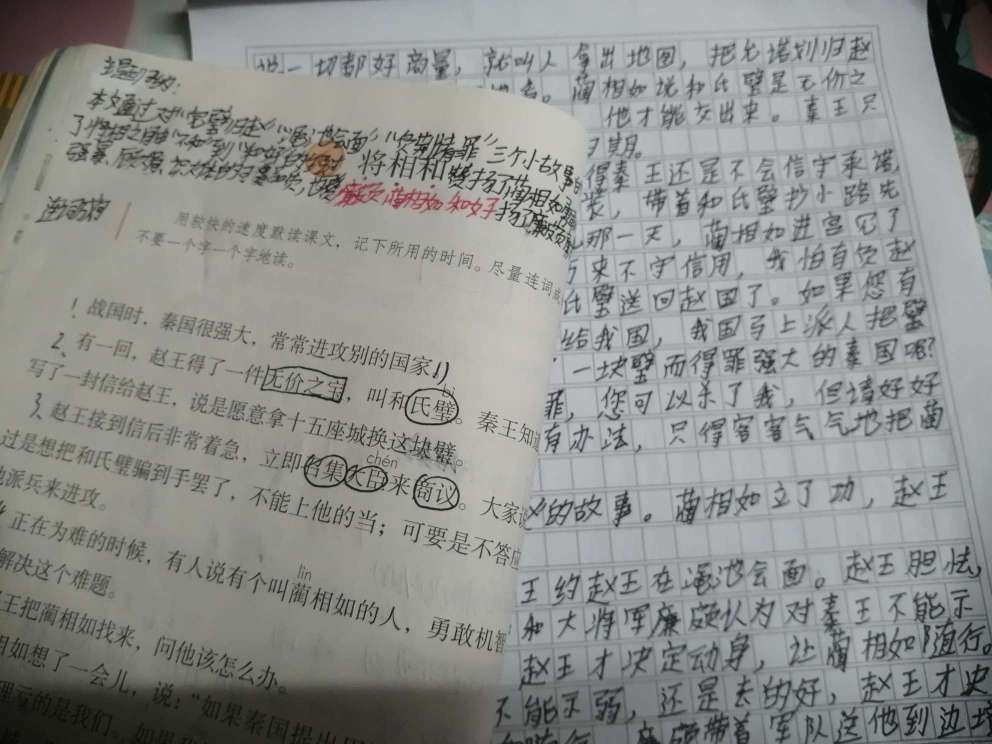 本文通过对"完璧归赵""渑池会面""负荆请罪"三个小故事的
将相和
廉颇 蔺相如 和好
用较快的速度默读课文,记下所用的时间。尽量连词成
不要一个字一个字地读。
1 战国时,秦国很强大,常常进攻别的国家。
2、有一回,赵王得了一件无价之宝,叫和氏璧。秦王知道
写了一封信给赵王,说是愿意拿十五座城换这块璧。
3、赵王接到信后非常着急,立即召集大臣来商议。大家说
chén
过是想把和氏璧骗到手罢了,不能上他的当;可要是不答应
他派兵来进攻。
4 正在为难的时候,有人说有个叫蔺相如的人,勇敢机智
lìn
解决这个难题。
王把蔺相如找来,问他该怎么办。
相如想了一会儿,说:"如果秦国提出
理亏的是我们。如果我
一切都好商量,就叫人拿出地图,把允诺划归赵
蔺相如说和氏璧是无价之
他才能交出来。秦王只
得秦王还是不会信守承诺
带着和氏璧抄小路先
那一天,蔺相如进宫见了
历来不守信用,我怕有负赵
氏璧送回赵国了。如果您有
给我国,我国马上派人把璧
一块璧而得罪强大的秦国呢?
罪,您可以杀了我,但请好好
有办法,只得客客气气地把蔺
的故事。蔺相如立了功,赵王
王约赵王在渑池会面。赵王胆怯,
和大将军廉颇认为对秦王不能示
赵王才决定动身,让蔺相如随行。
不能示弱,还是去的好,赵王才决
廉颇带着军队送他到边境